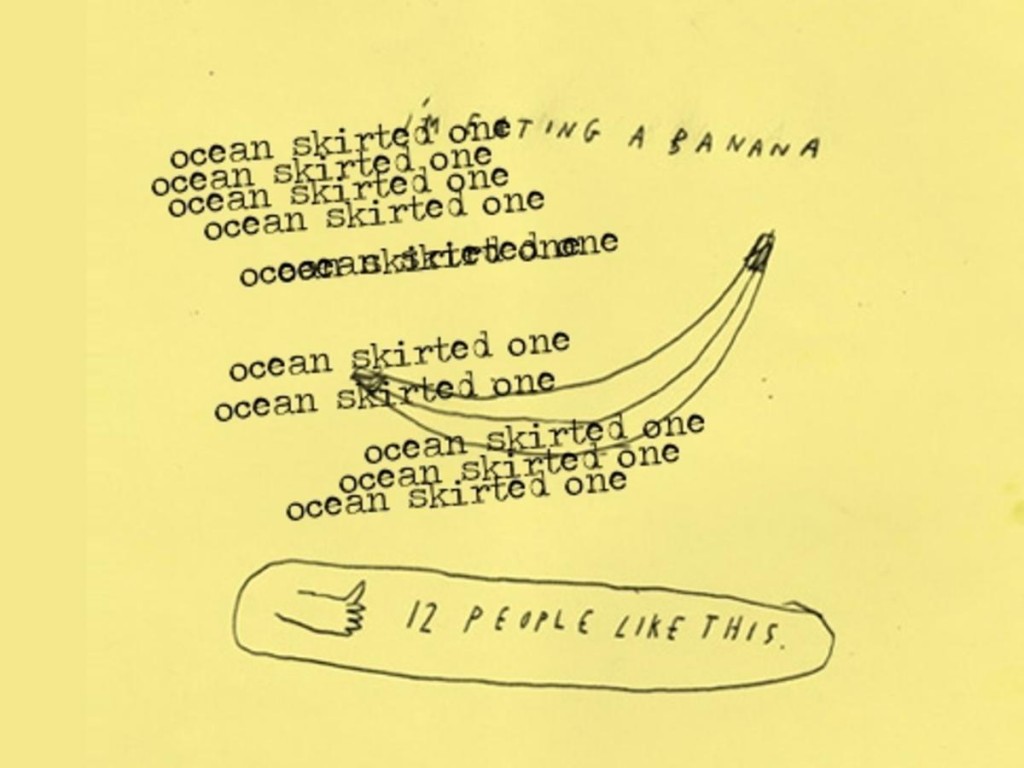 I'M EATING A BANANA
ocean skirted one
ocean skirted one
ocean skirted one
ocean skirted one
ocean skirted one
ocean skirted one
ocean skirted one
ocean skirted one
ocean skirted one
ocean skirted one
ocean skirted one
12 PEOPLE LIKE THIS.